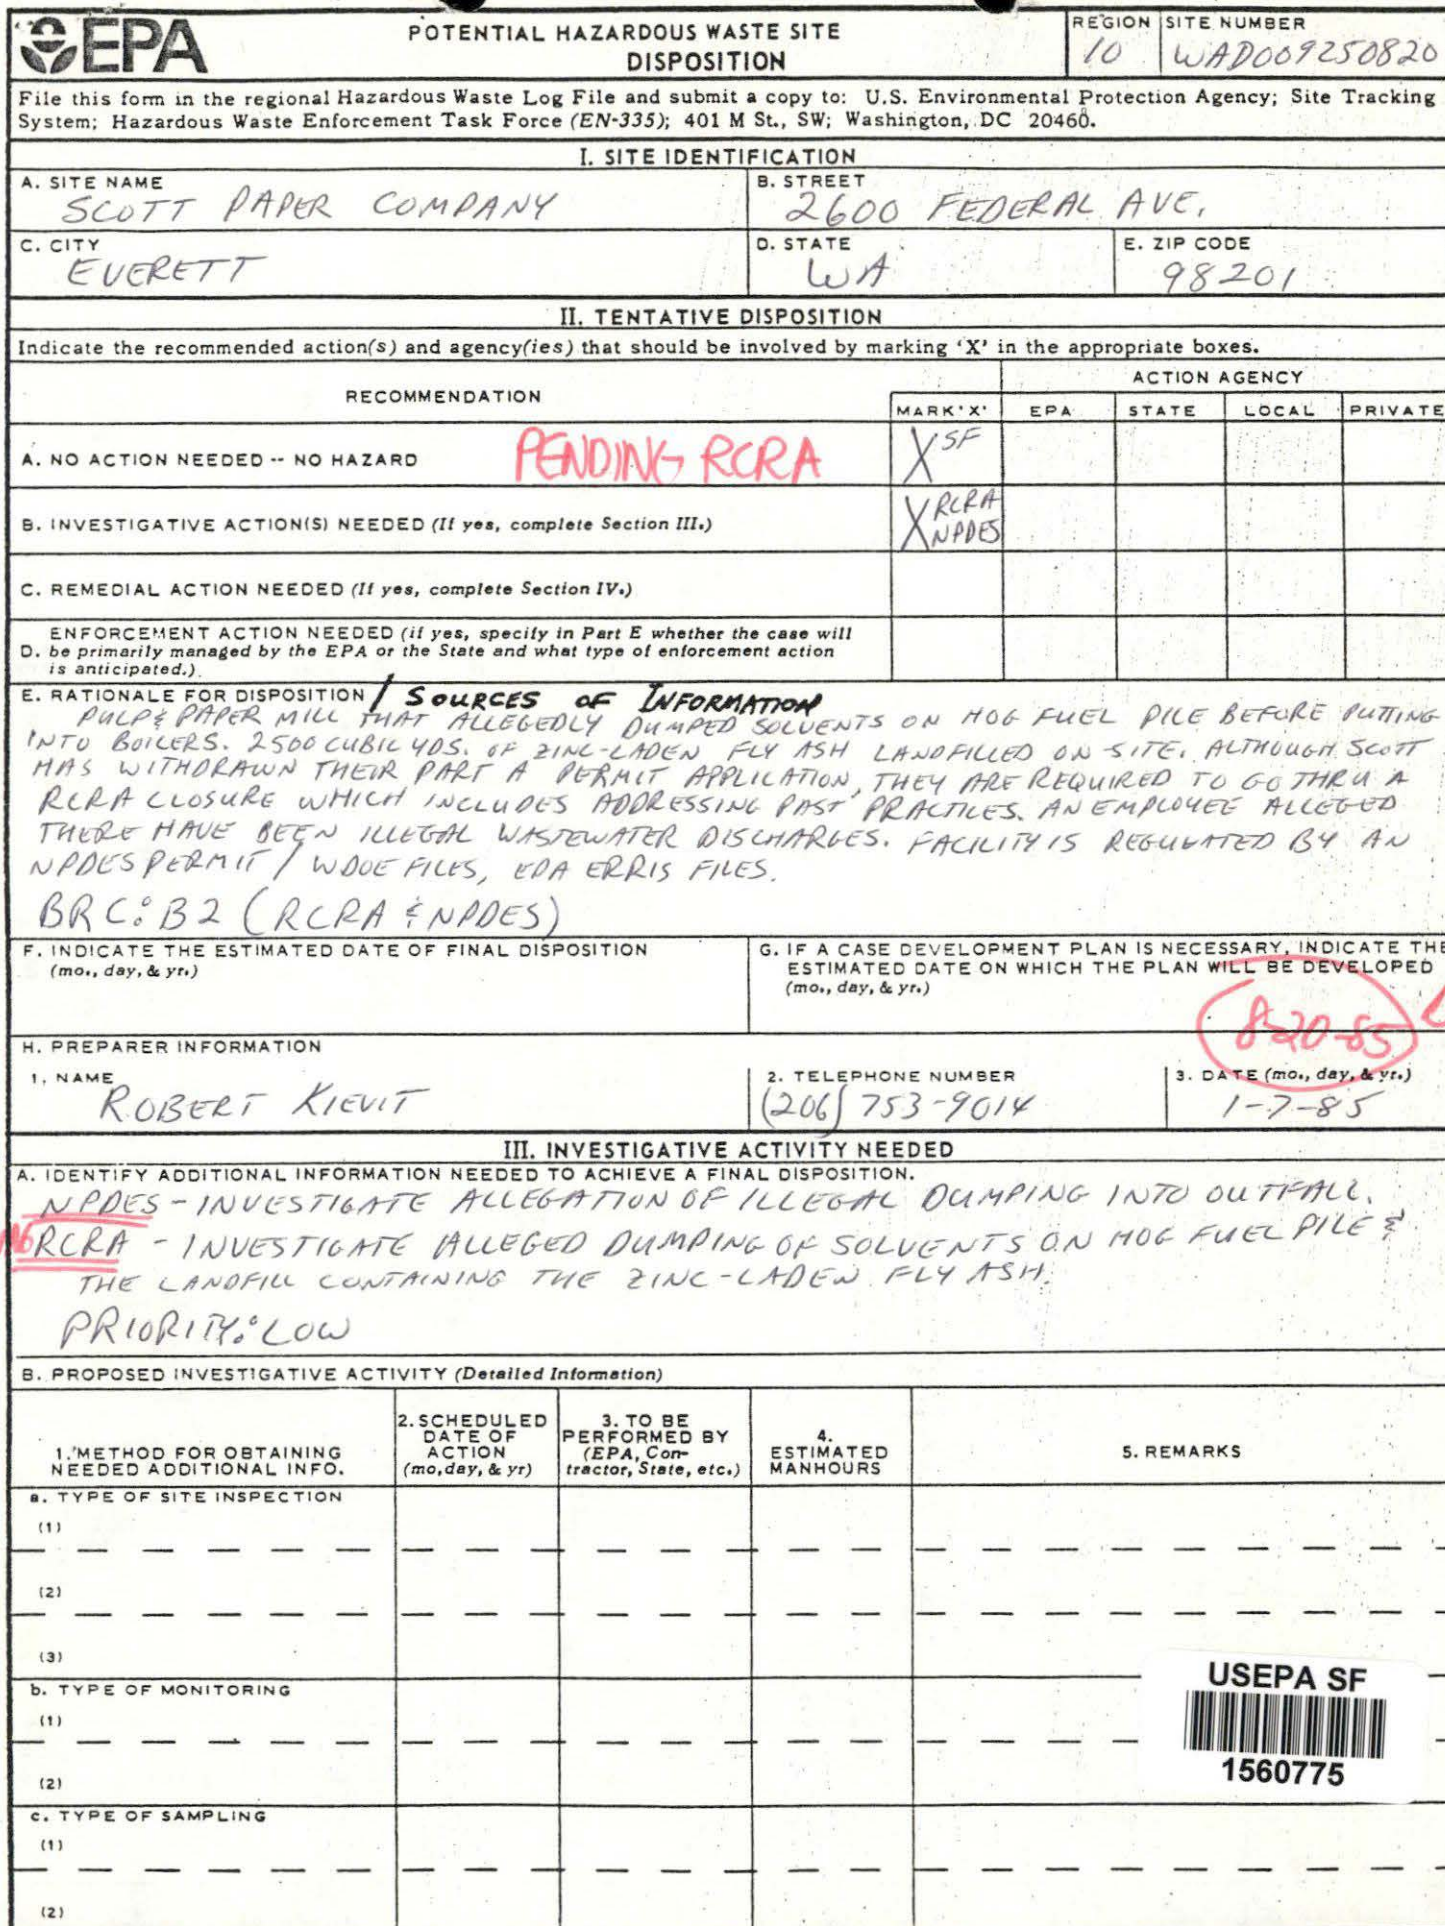 EPA
POTENTIAL HAZARDOUS WASTE SITE
DISPOSITION
REGION
10
SITE NUMBER
WAD009250820
File this form in the regional Hazardous Waste Log File and submit a copy to: U.S. Environmental Protection Agency; Site Tracking
System; Hazardous Waste Enforcement Task Force (EN-335); 401 M St., SW; Washington, DC 20460.
I. SITE IDENTIFICATION
A. SITE NAME
SCOTT PAPER COMPANY
B. STREET
2600 FEDERAL AVE.
C. CITY
EVERETT
D. STATE
WA
E. ZIP CODE
98201
II. TENTATIVE DISPOSITION
Indicate the recommended action(s) and agency(ies) that should be involved by marking 'X' in the appropriate boxes.
RECOMMENDATION
MARK 'X'
ACTION AGENCY
EPA STATE LOCAL PRIVATE
A. NO ACTION NEEDED -- NO HAZARD PENDING RCRA X SF
B. INVESTIGATIVE ACTION(S) NEEDED (If yes, complete Section III.) X RCRA
NPDES
C. REMEDIAL ACTION NEEDED (If yes, complete Section IV.)
ENFORCEMENT ACTION NEEDED (if yes, specify in Part E whether the case will
D. be primarily managed by the EPA or the State and what type of enforcement action
is anticipated.)
E. RATIONALE FOR DISPOSITION / SOURCES OF INFORMATION
PULP & PAPER MILL THAT ALLEGEDLY DUMPED SOLVENTS ON HOG FUEL PILE BEFORE PUTTING
INTO BOILERS. 2500 CUBIC YDS. OF ZINC-LADEN FLY ASH LANDFILLED ON SITE. ALTHOUGH SCOTT
HAS WITHDRAWN THEIR PART A PERMIT APPLICATION, THEY ARE REQUIRED TO GO THRU A
RCRA CLOSURE WHICH INCLUDES ADDRESSING PAST PRACTICES. AN EMPLOYEE ALLEGED
THERE HAVE BEEN ILLEGAL WASTEWATER DISCHARGES. FACILITY IS REGULATED BY AN
NPDES PERMIT / WDOE FILES, EPA ERRIS FILES.
BRC: B2 (RCRA & NPDES)
F. INDICATE THE ESTIMATED DATE OF FINAL DISPOSITION
(mo., day, & yr.)
G. IF A CASE DEVELOPMENT PLAN IS NECESSARY, INDICATE THE
ESTIMATED DATE ON WHICH THE PLAN WILL BE DEVELOPED
(mo., day, & yr.)
8-20-85
H. PREPARER INFORMATION
1. NAME
ROBERT KIEVIT
2. TELEPHONE NUMBER
(206) 753-9014
3. DATE (mo., day, & yr.)
1-7-85
III. INVESTIGATIVE ACTIVITY NEEDED
A. IDENTIFY ADDITIONAL INFORMATION NEEDED TO ACHIEVE A FINAL DISPOSITION.
NPDES - INVESTIGATE ALLEGATION OF ILLEGAL DUMPING INTO OUTFALL.
RCRA - INVESTIGATE ALLEGED DUMPING OF SOLVENTS ON HOG FUEL PILE &
THE LANDFILL CONTAINING THE ZINC-LADEN FLY ASH.
PRIORITY: LOW
B. PROPOSED INVESTIGATIVE ACTIVITY (Detailed Information)
1. METHOD FOR OBTAINING
NEEDED ADDITIONAL INFO.
2. SCHEDULED
DATE OF
ACTION
(mo, day, & yr)
3. TO BE
PERFORMED BY
(EPA, Con-
tractor, State, etc.)
4.
ESTIMATED
MANHOURS
5. REMARKS
a. TYPE OF SITE INSPECTION
(1)
(2)
(3)
b. TYPE OF MONITORING
(1)
(2)
USEPA SF
1560775
c. TYPE OF SAMPLING
(1)
(2)